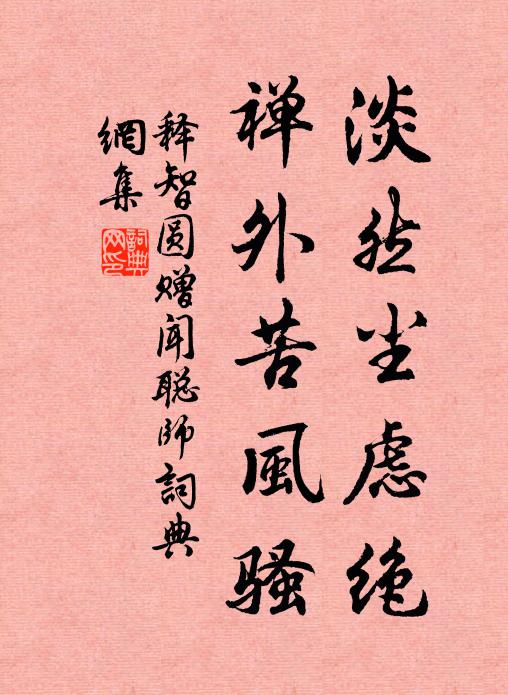 淡然尘虑绝
禅外苦風騷
释智圆赠闻聪师詞典
網集
詞典網印